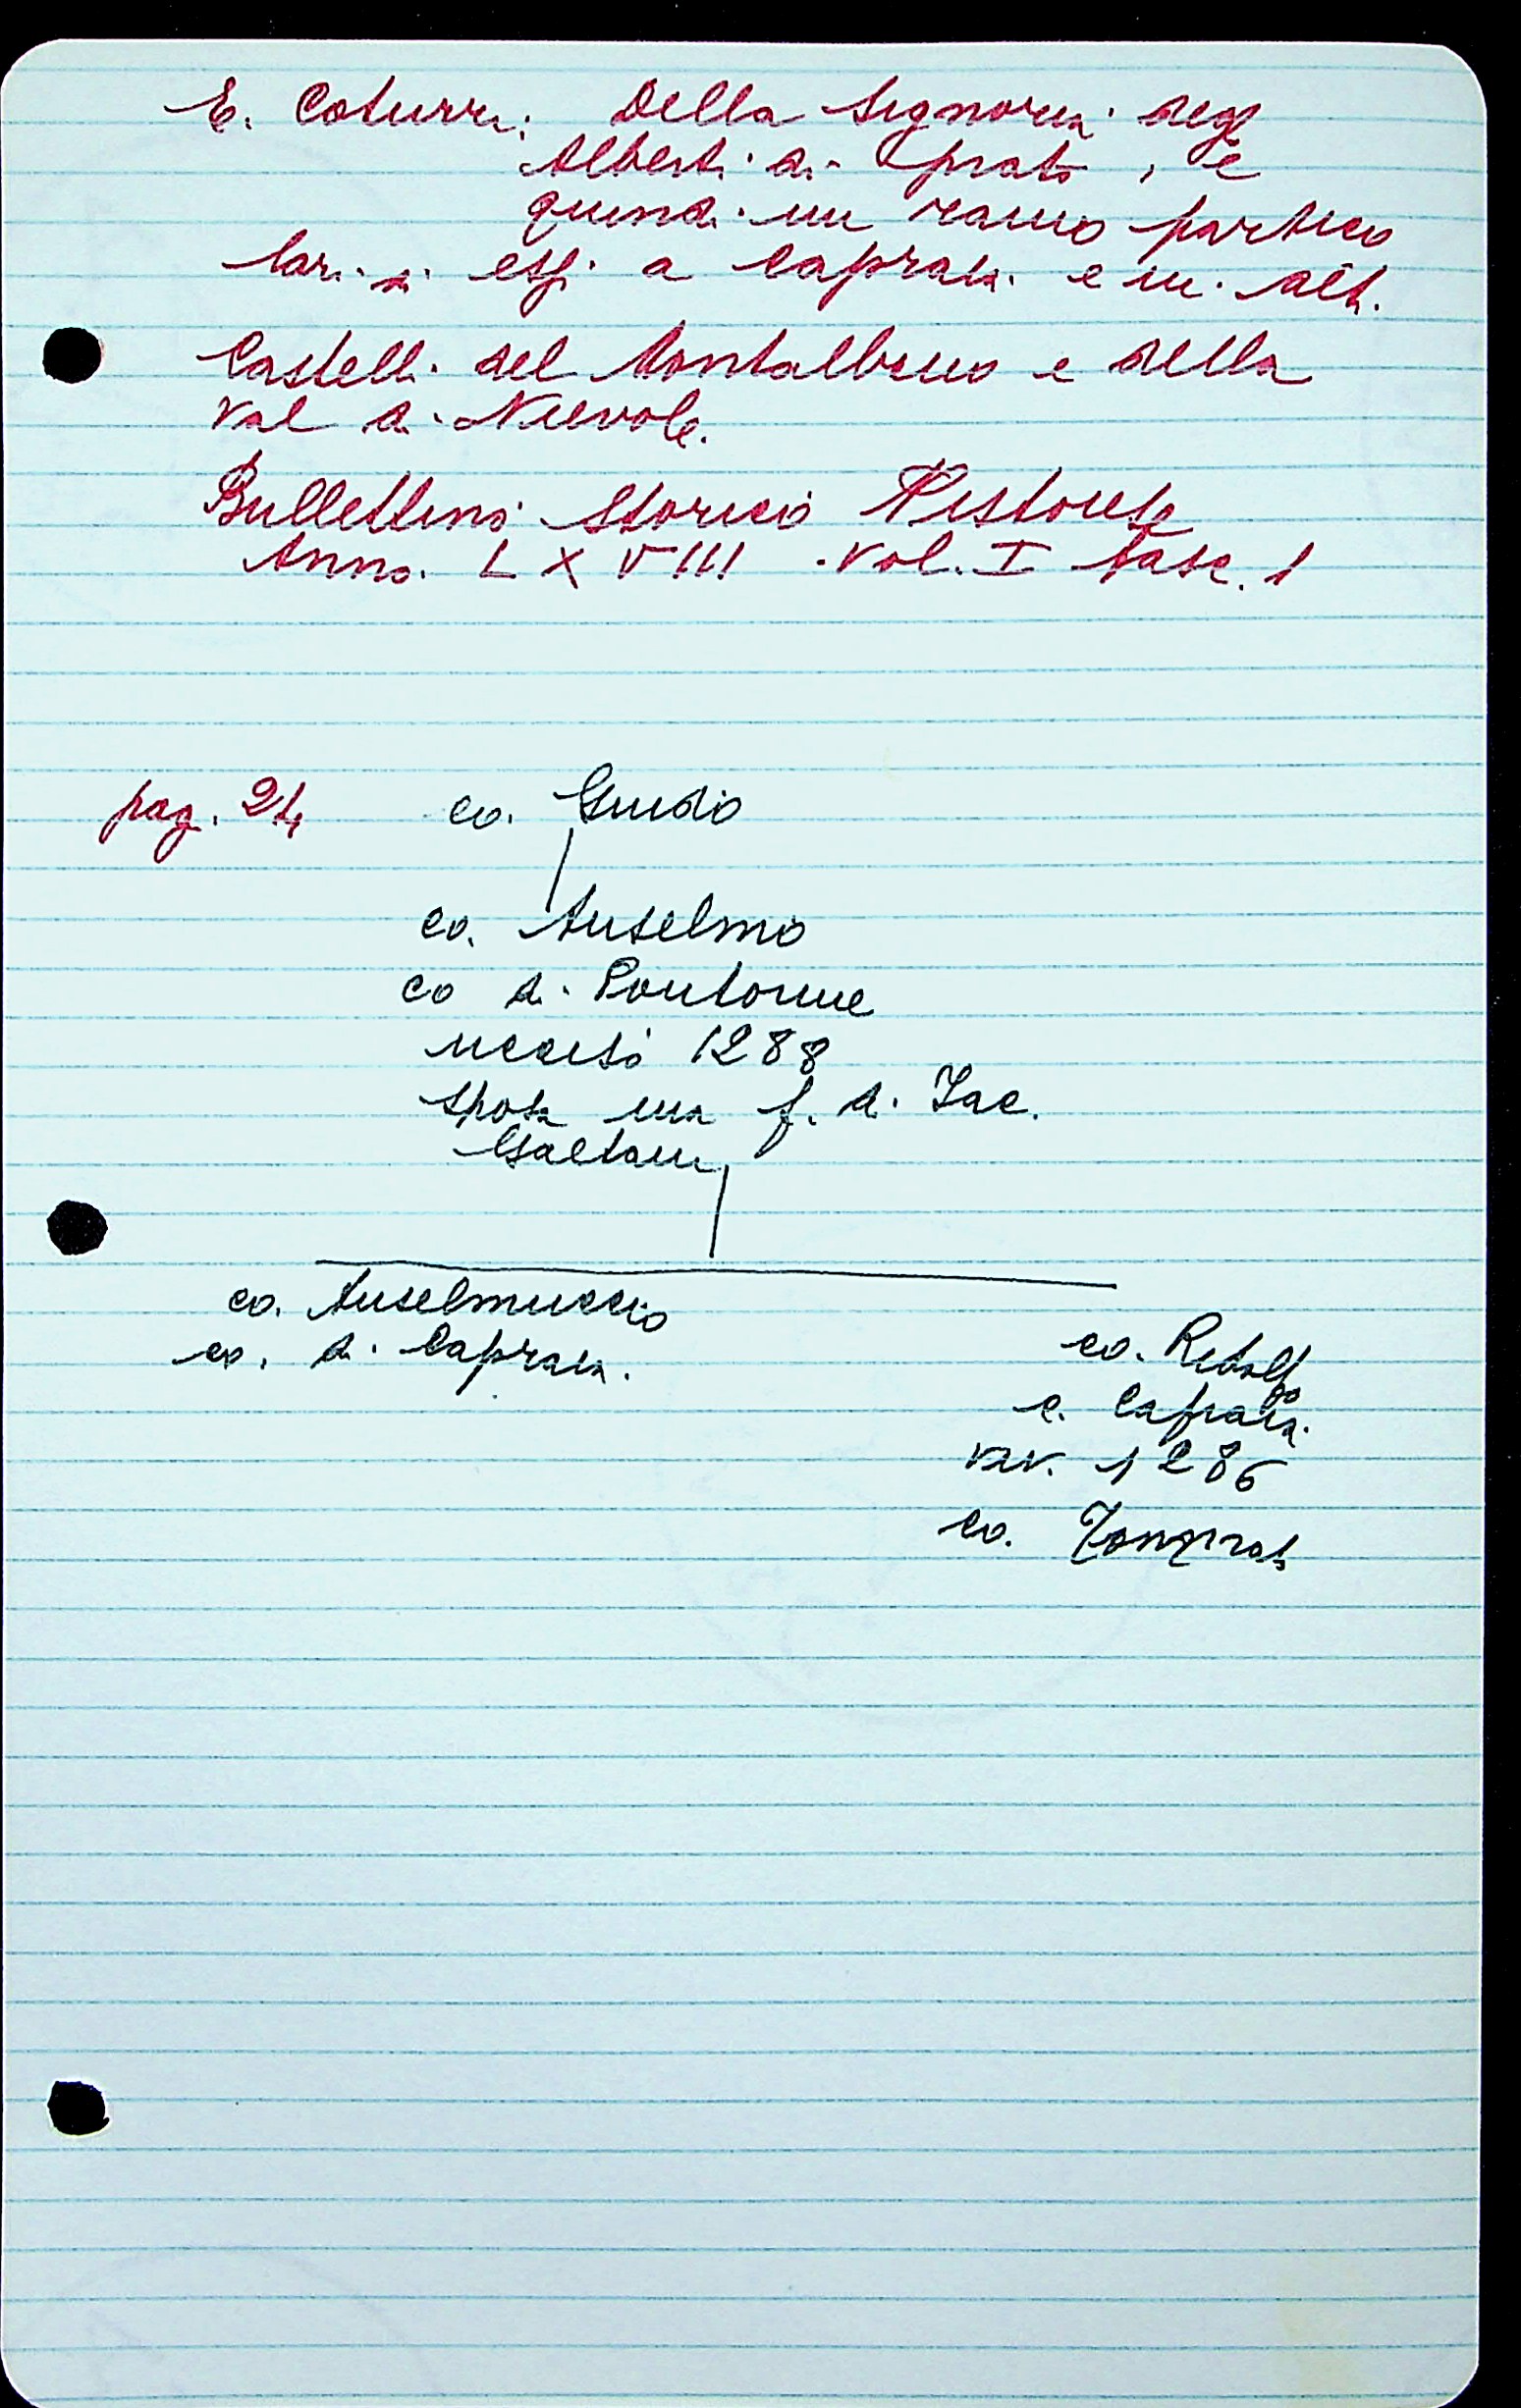 E. Coturri. Della Signoria degl
Alberti di Prato, e
quindi un ramo partico
lari di essi a Capraia e in alt.
Castelli del Montalbano e della
Val di Nievole.
Bullettino Storico Pistoiese
Anno. LXVIII. Vol. I fasc. 1
pag. 24 co. Guido
co. Anselmo
co di Pontorme
ucciso 1288
sposa una f. di Iac.
Gaetani
co. Anselmuccio
co. di Capraia.
co. Ridolf
do
c. Capraia.
viv. 1286
co.